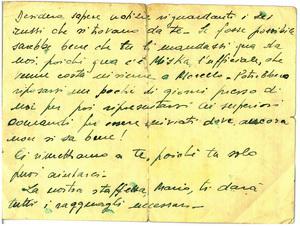 Desidero sapere notizie riguardanti i due
russi che si trovano da te. Se fosse possibile
sarebbe bene che tu li mandassi qua da
noi, poichè qua c'è Miska, l'ufficiale, che
venne costì insieme a Marcello. Potrebbero
riposarsi un pochi di giorni presso di
noi per poi ripresentarsi ai superiori
comandi per essere inviati dove ancora
non si sa bene!
Ci rimettiamo a te, poichè tu solo
puoi aiutarci.
La nostra staffetta, Mario, ti darà
tutti i ragguagli necessari.